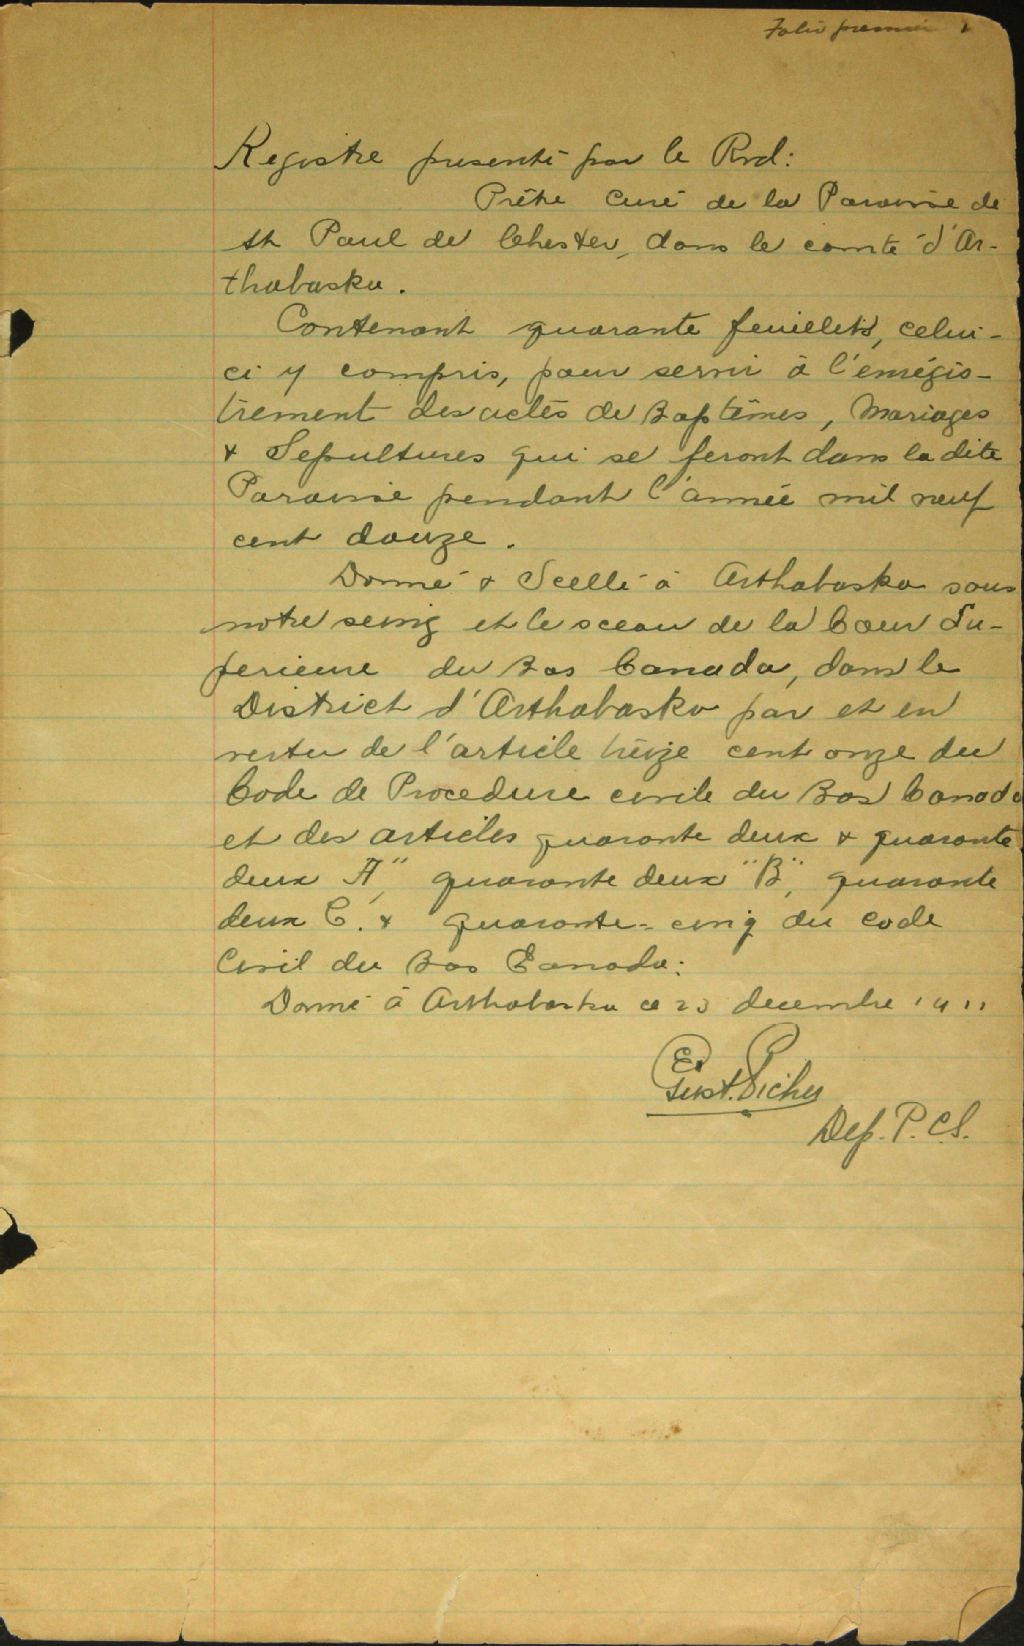 Folio premier 1
Registre presenté par le Rvd:
Prêtre Curé de la Paroisse de
St Paul de Chester, dans le comté d'Ar-
thabaska.
Contenant quarante feuillets, celui-
ci y compris, pour servir à l'enrégis-
trement des actes de Baptêmes, Mariages
& Sepultures qui se feront dans la dite
Paroisse pendant l'année mil neuf
cent douze.
Donné & Scellé à Arthabaska sous
notre seing et le sceau de la Cour Su-
perieure du Bas Canada, dans le
District d'Arthabaska par et en
vertu de l'article treize cent onze du
Code de Procedure civile du Bas Canada
et des articles quarante deux & quarante
deux "A", quarante deux "B", quarante
deux C. & quarante-cinq du code
Civil du Bas Canada:
Donné à Arthabaska ce 23 decembre 1911
Picher
Dep. P.C.S.